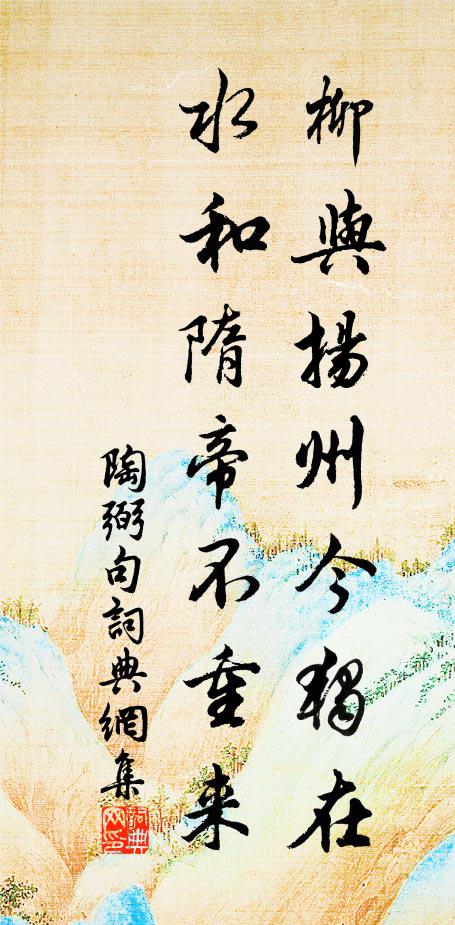 柳與揚州今獨在
水和隋帝不重来
陶弼句詞典網集
詞典网印